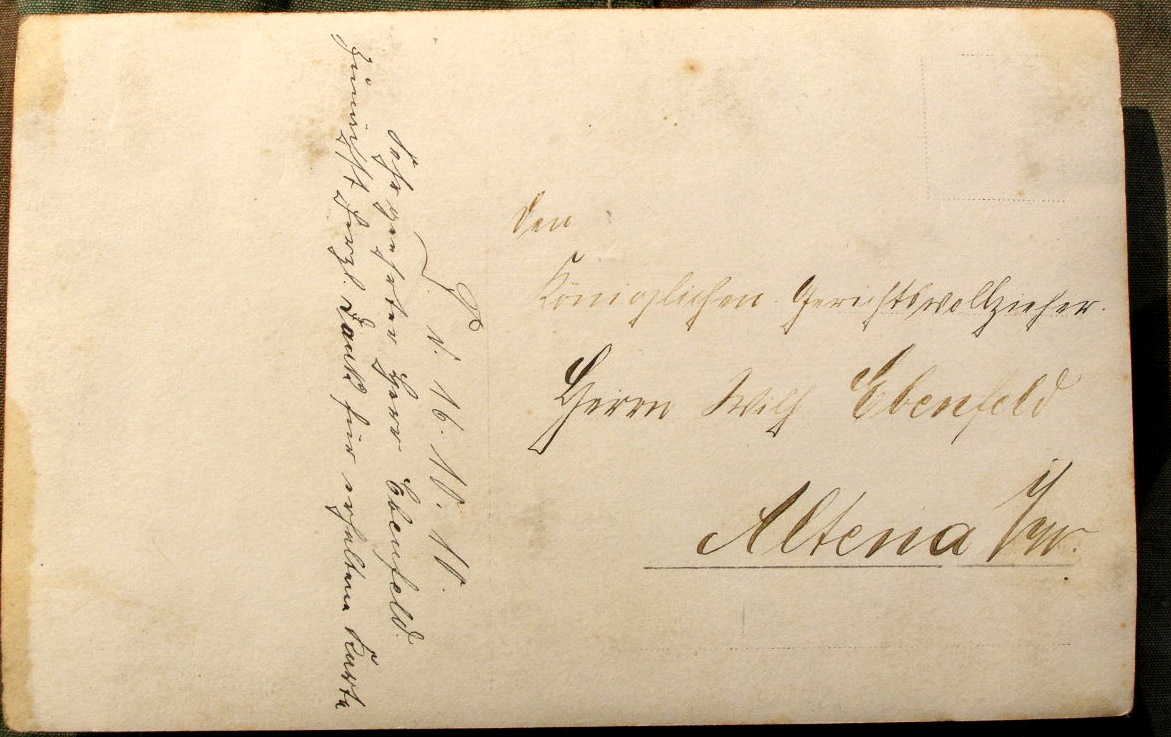 d. 16. 10. 10.
Sehr geehrter Herr Ebenfeld.
Zunächst herzl. Dank für erhaltene Karte
Den
Königlichen Gerichtsvollzieher.
Herrn Wilh Ebenfeld
Altena i/W.